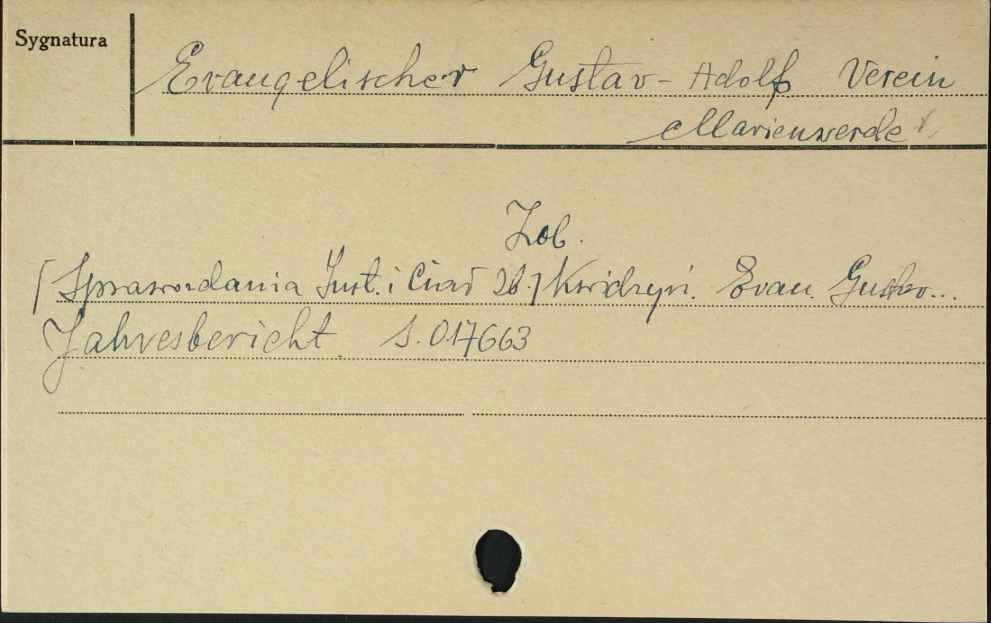 Sygnatura
Evangelischer Gustav-Adolf Verein
Marienwerder
Zob.
[Sprawozdania Inst. i Ciał Zb.] Kwidzyń. Evan. Gustav...
Jahresbericht S.017663